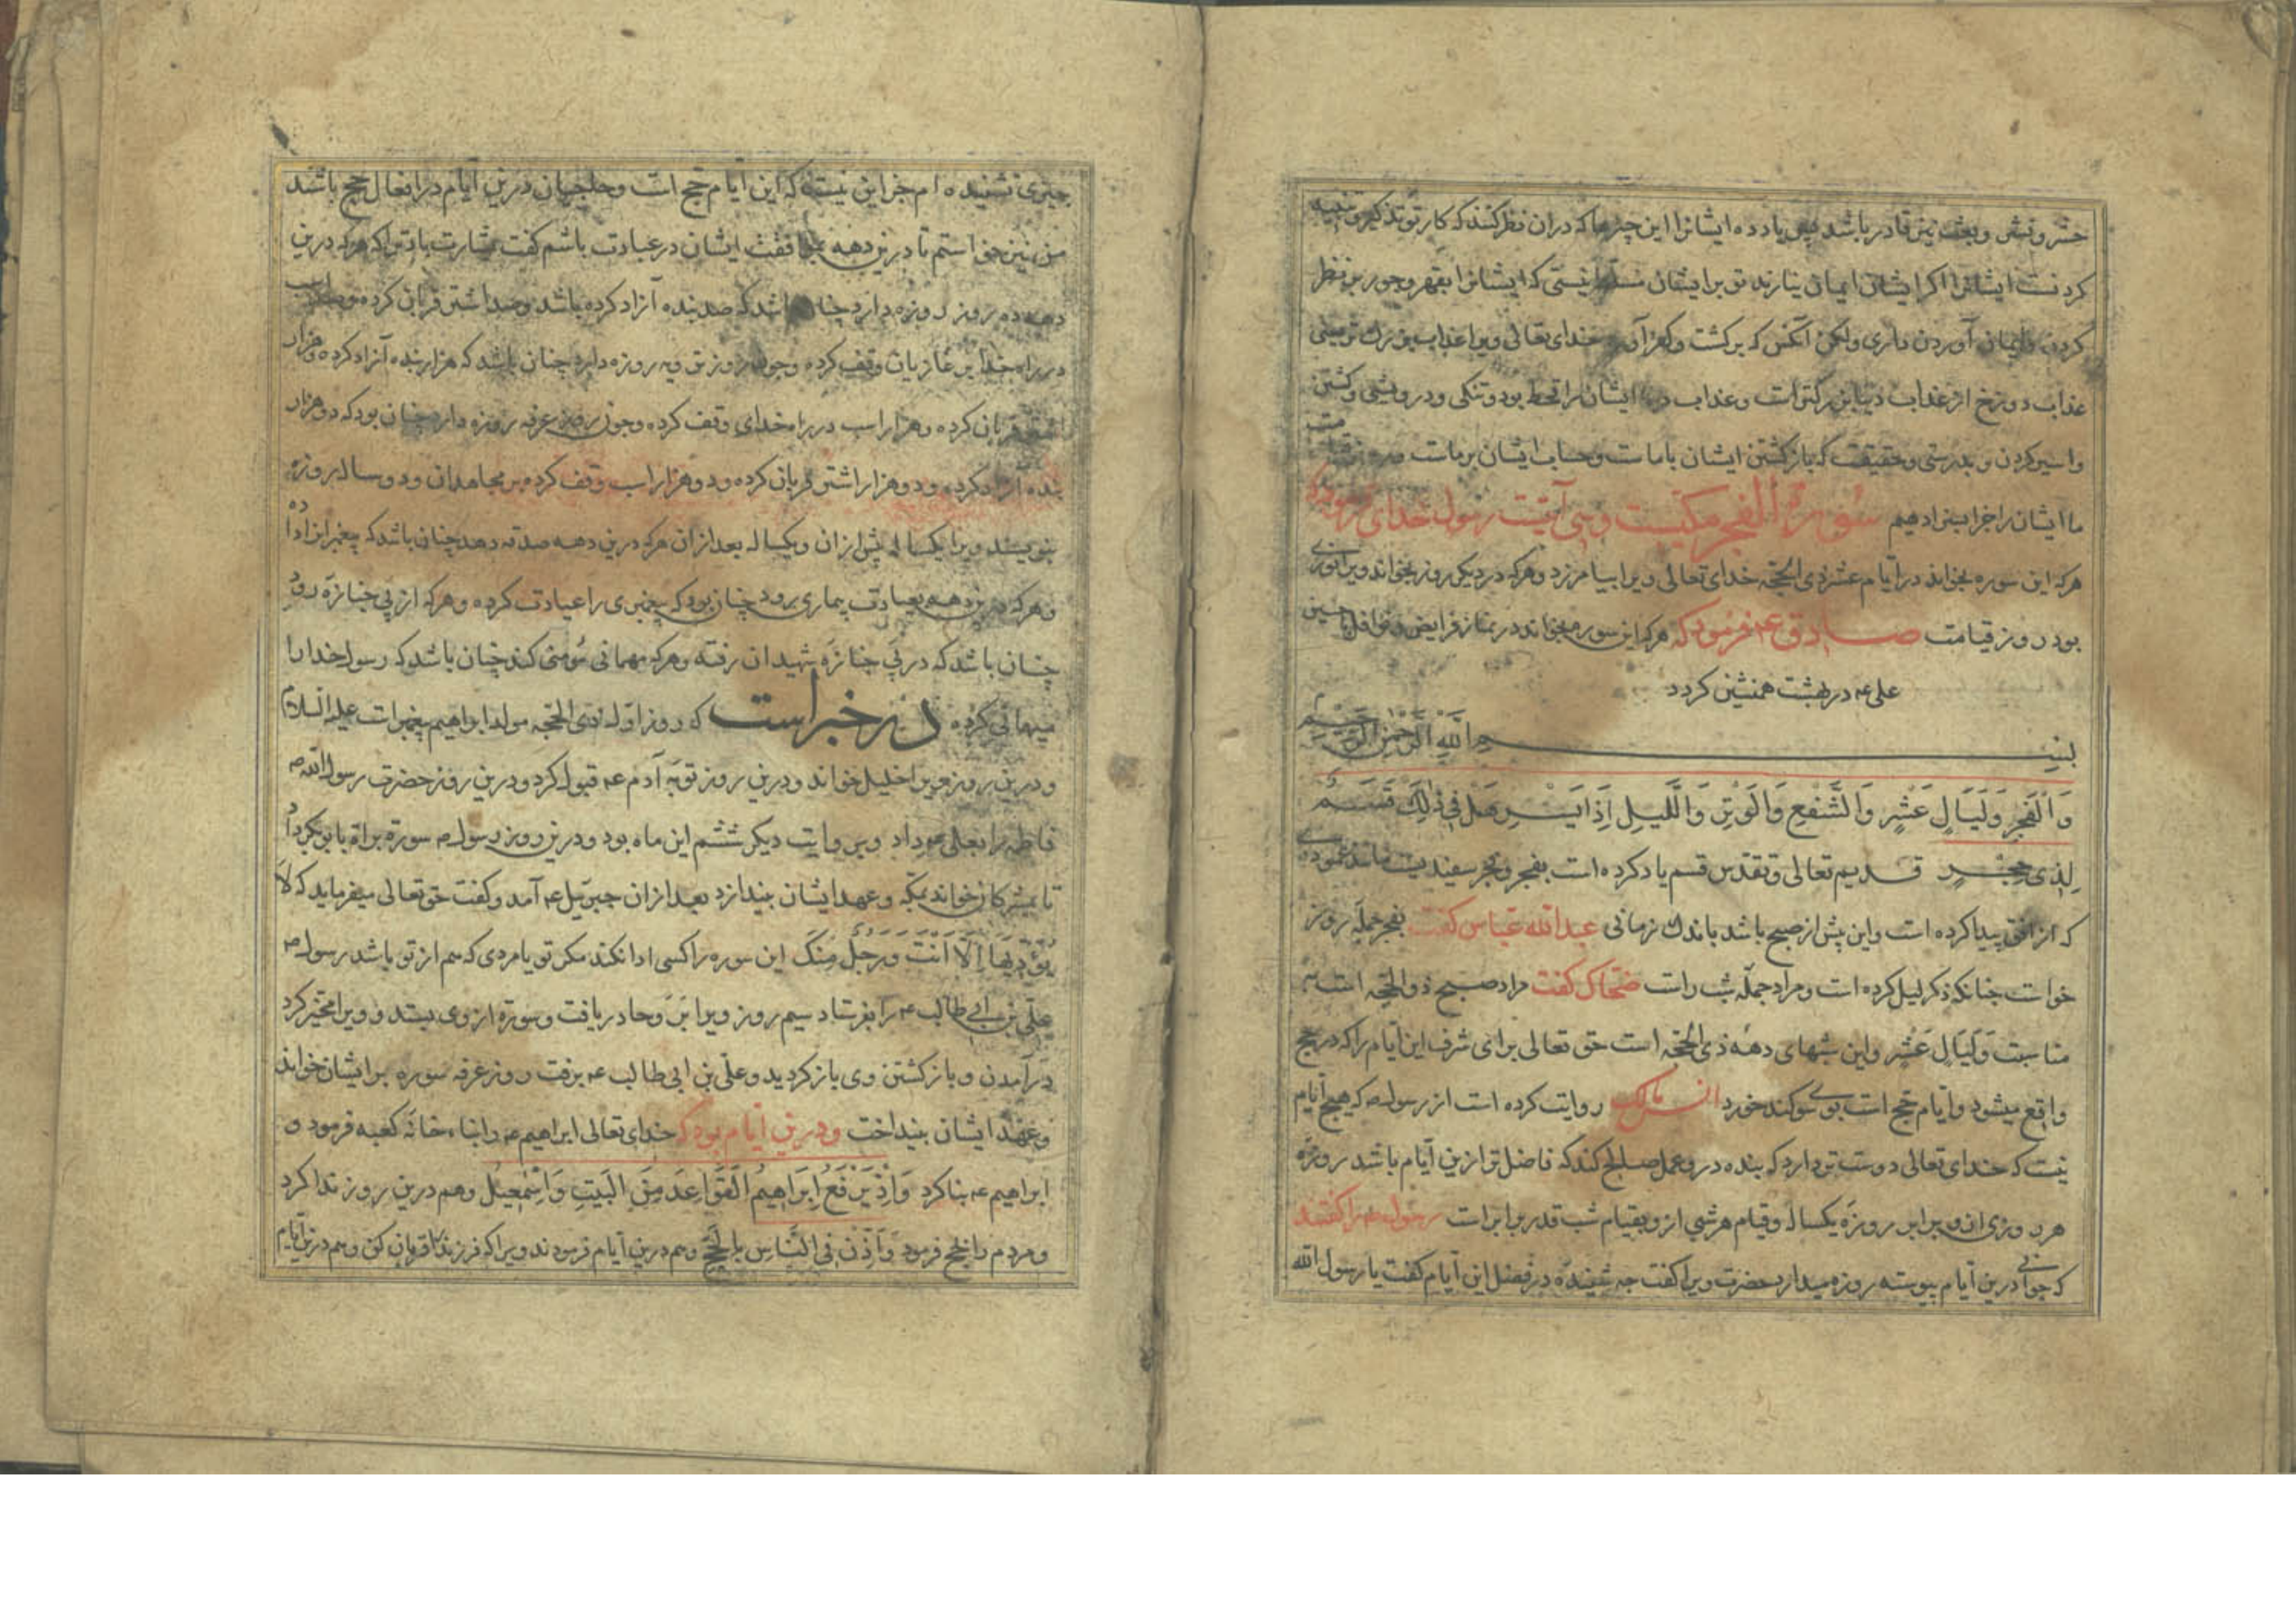 حشر و نشر و بعث نیز قادر باشد پس یاد ده ایشانرا این چیزها که دران نظر کنند که کار تو تذکیر و تنبیه
کردنست ایشانرا اکر ایشان ایمان نیارند تو بر ایشان مسلط نیستی که ایشانرا بقهر و جور برین نظر
کردن و ایمان آوردن داری ولکن آنکس که برکشت و کفر آورد خدای تعالی ویرا عذاب بزرک تر یعنی
عذاب دوزخ از عذاب دنیا بزرکتر است و عذاب دنیا ایشانرا قحط بود و تنکی و درویشی و کشتن
و اسیر کردن و بدرستی و حقیقت که بازکشتن ایشان با ماست و حساب ایشان بر ماست
ما ایشان را جزا بسزا دهیم سورة الفجر مکیست و سی آیتست رسول خدای فرمود که
هرکه این سوره بخواند در ایام عشر ذی الحجه خدای تعالی ویرا بیامرزد و هرکه در دیکر روز بخواند ویرا نوری
بود روز قیامت صادق ع فرمود که هرکه این سوره بخواند در نماز فرایض و نوافل با حسین
علی ع در بهشت همنشین کردد
بسم الله الرحمن الرحیم
وَالْفَجْرِ وَلَيَالٍ عَشْرٍ وَالشَّفْعِ وَالْوَتْرِ وَاللَّيْلِ إِذَا يَسْرِ هَلْ فِي ذٰلِكَ قَسَمٌ
لِذِي حِجْرٍ قدیم تعالی و تقدس قسم یاد کرده است بفجر و فجر سفیدیست مانند عمودی
که از افق پیدا کرده است و این پیش از صبح باشد باندک زمانی عبدالله عباس کفت بفجر جمله روز
خواست چنانکه ذکر لیل کرده است و مراد جمله شب راست ضحاک کفت مراد صبح ذو الحجه است
مناسبت وَلَيَالٍ عَشْرٍ و این شبهای دهه ذی الحجه است حق تعالی برای شرف این ایام را که در حج
واقع میشود و ایام حج است بوی سوکند خورد انس مالک روایت کرده است از رسول ص که هیچ ایام
نیست که خدای تعالی دوست تر دارد که بنده درو عمل صالح کند که فاضل تر ازین ایام باشد روزه
هر روزی ازو برابر روزه یکساله و قیام هر شبی ازو بقیام شب قدر برابر است رسول ص را کفتند
که جوانی درین ایام پیوسته روزه میدارد حضرت ویرا کفت چه شنیده در فضل این ایام کفت یا رسول الله
چیزی نشنیده ام جز این نیست که این ایام حج است و حاجیان درین ایام در افعال حج باشند
من نیز خواستم تا درین دهه بموافقت ایشان در عبادت باشم کفت بشارت باد ترا که هرکه درین
دهه ده روز روزه دارد چنان باشد که صد بنده آزاد کرده باشد و صد اشتر قربان کرده و صد اسب
در راه خدا بر غازیان وقف کرده و چون روز ترویه روزه دارد چنان باشد که هزار بنده آزاد کرده و هزار
اشتر قربان کرده و هزار اسب در راه خدای وقف کرده و چون روز عرفه روزه دارد چنان بود که دو هزار
بنده آزاد کرده و دو هزار اشتر قربان کرده و دو هزار اسب وقف کرده بر مجاهدان و دو ساله روزه
بنویسند ویرا یکساله پیش ازان و یکساله بعد ازان هرکه درین دهه صدقه دهد چنان باشد که پیغمبرانرا داده
و هرکه درین دهه بعیادت بیماری رود چنان بود که پیغمبری را عیادت کرده و هرکه از پی جنازه رود
چنان باشد که در پی جنازه شهیدان رفته و هرکه مهمانی مؤمنی کند چنان باشد که رسول خدا را
میهمانی کرده در خبر است که روز اول از ذی الحجه مولد ابراهیم پیغمبر است علیه السلام
و درین روز ویرا خلیل خواند و درین روز توبه آدم ع قبول کرد و درین روز حضرت رسول الله ص
فاطمه را بعلی ع داد و بروایت دیکر ششم این ماه بود و درین روز رسول ص سوره براة بابوبکر داد
تا بمشرکان خواند بمکه و عهد ایشان بیندازد بعد ازان جبرئیل ع آمد و کفت حق تعالی میفرماید که لَا
يُؤَدِّيهَا إِلَّا أَنْتَ وَرَجُلٌ مِنْكَ این سوره را کسی ادا نکند مکر تو یا مردی که هم از تو باشد رسول ص
علی بن ابی طالب ع را بفرستاد سیم روز ویرا بروحا دریافت و سوره از وی بستد و ویرا مخیر کرد
در آمدن و بازکشتن وی بازکردید و علی بن ابی طالب ع برفت روز عرفه سوره بر ایشان خواند
و عهد ایشان بینداخت و درین ایام بود که خدای تعالی ابراهیم ع را ببناء خانه کعبه فرمود و
ابراهیم ع بنا کرد وَإِذْ يَرْفَعُ إِبْرَاهِيمُ الْقَوَاعِدَ مِنَ الْبَيْتِ وَإِسْمٰعِيلُ و هم درین روز ندا کرد
و مردم را بحج فرمود وَأَذِّنْ فِي النَّاسِ بِالْحَجِّ و هم درین ایام فرمودند ویرا که فرزند را قربان کن و هم درین ایام